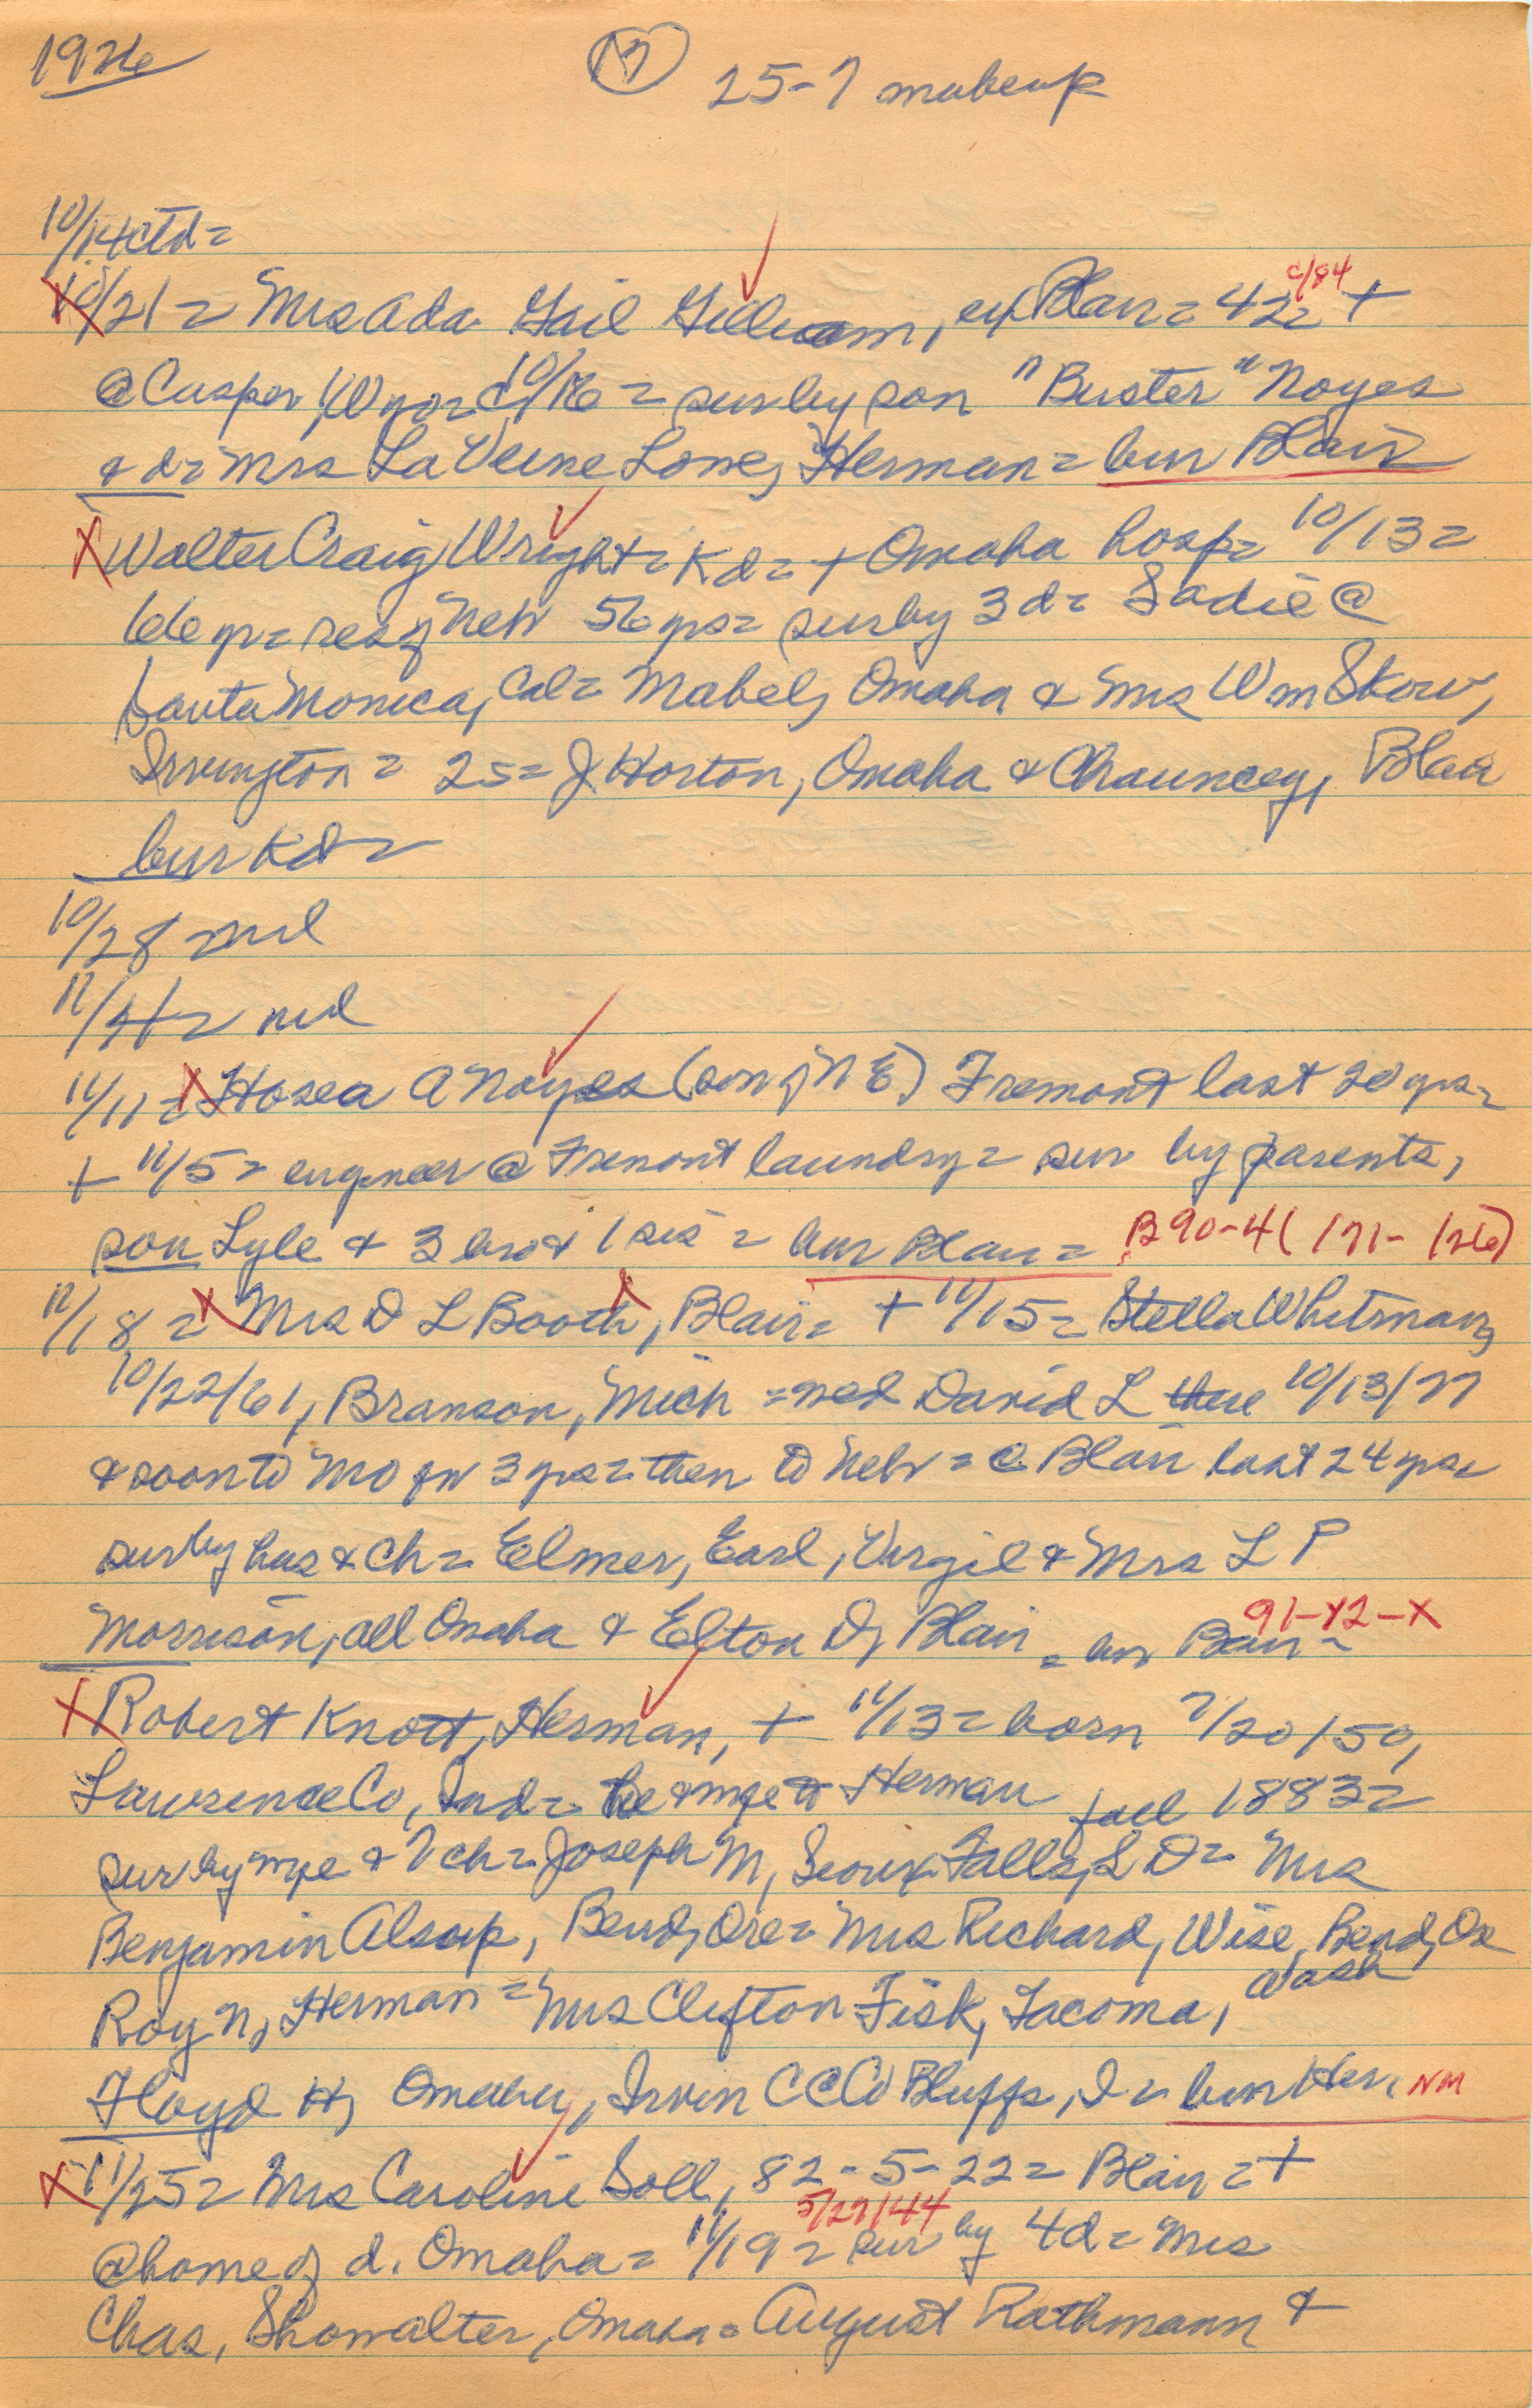 1926
17
25-7 makeup
10/14 ctd =
10/21 = Mrs Ada Gail Gilliam, ex Blair = 42 = +
c/84
@ Casper, Wyo = c 10/16 = sur by son "Buster" Noyes
& d = Mrs La Verne Lone, Herman = bur Blair
X Walter Craig Wright = Kd = + Omaha hosp = 10/13 =
66 yr = res of Neb 56 yrs = sur by 3 d = Sadie @
Santa Monica, Cal = Mabel, Omaha & Mrs Wm Skow,
Irvington = 2 s = J Horton, Omaha & Chauncey, Blair
bur Kd =
10/28 = nil
11/4 = nil
11/11 = X Hosea A Noyes (son of N E) Fremont last 20 yrs =
+ 11/5 = engineer @ Fremont laundry = sur by parents,
son Lyle & 3 bro & 1 sis = bur Blair = B90-4 (171-126)
11/18 = X Mrs D L Booth, Blair = + 11/15 = Stella Whitman,
10/22/61, Branson, Mich = md David L there 10/13/77
& soon to Mo for 3 yrs = then to Neb = @ Blair last 24 yrs =
sur by hus & ch = Elmer, Earl, Virgil & Mrs L P
Morrison, all Omaha & Elton D, Blair = bur Blair =
91-42-X
X Robert Knott, Herman, + 11/13 = born 7/20/50,
Lawrence Co, Ind = he & wife to Herman fall 1883 =
sur by wife & 7 ch = Joseph M, Sioux Falls, S D = Mrs
Benjamin Alsup, Bend, Ore = Mrs Richard, Wise, Bend, Ore
Roy N, Herman = Mrs Clifton Fisk, Tacoma, Wash
Floyd H, Omaha, Irvin C @ Co Bluffs, I = bur Her, NM
X 11/25 = Mrs Caroline Soll, 82-5-22 = Blair = +
5/27/44
@ home of d. Omaha = 11/19 = sur by 4 d = Mrs
Chas. Showalter, Omaha = August Rathmann &